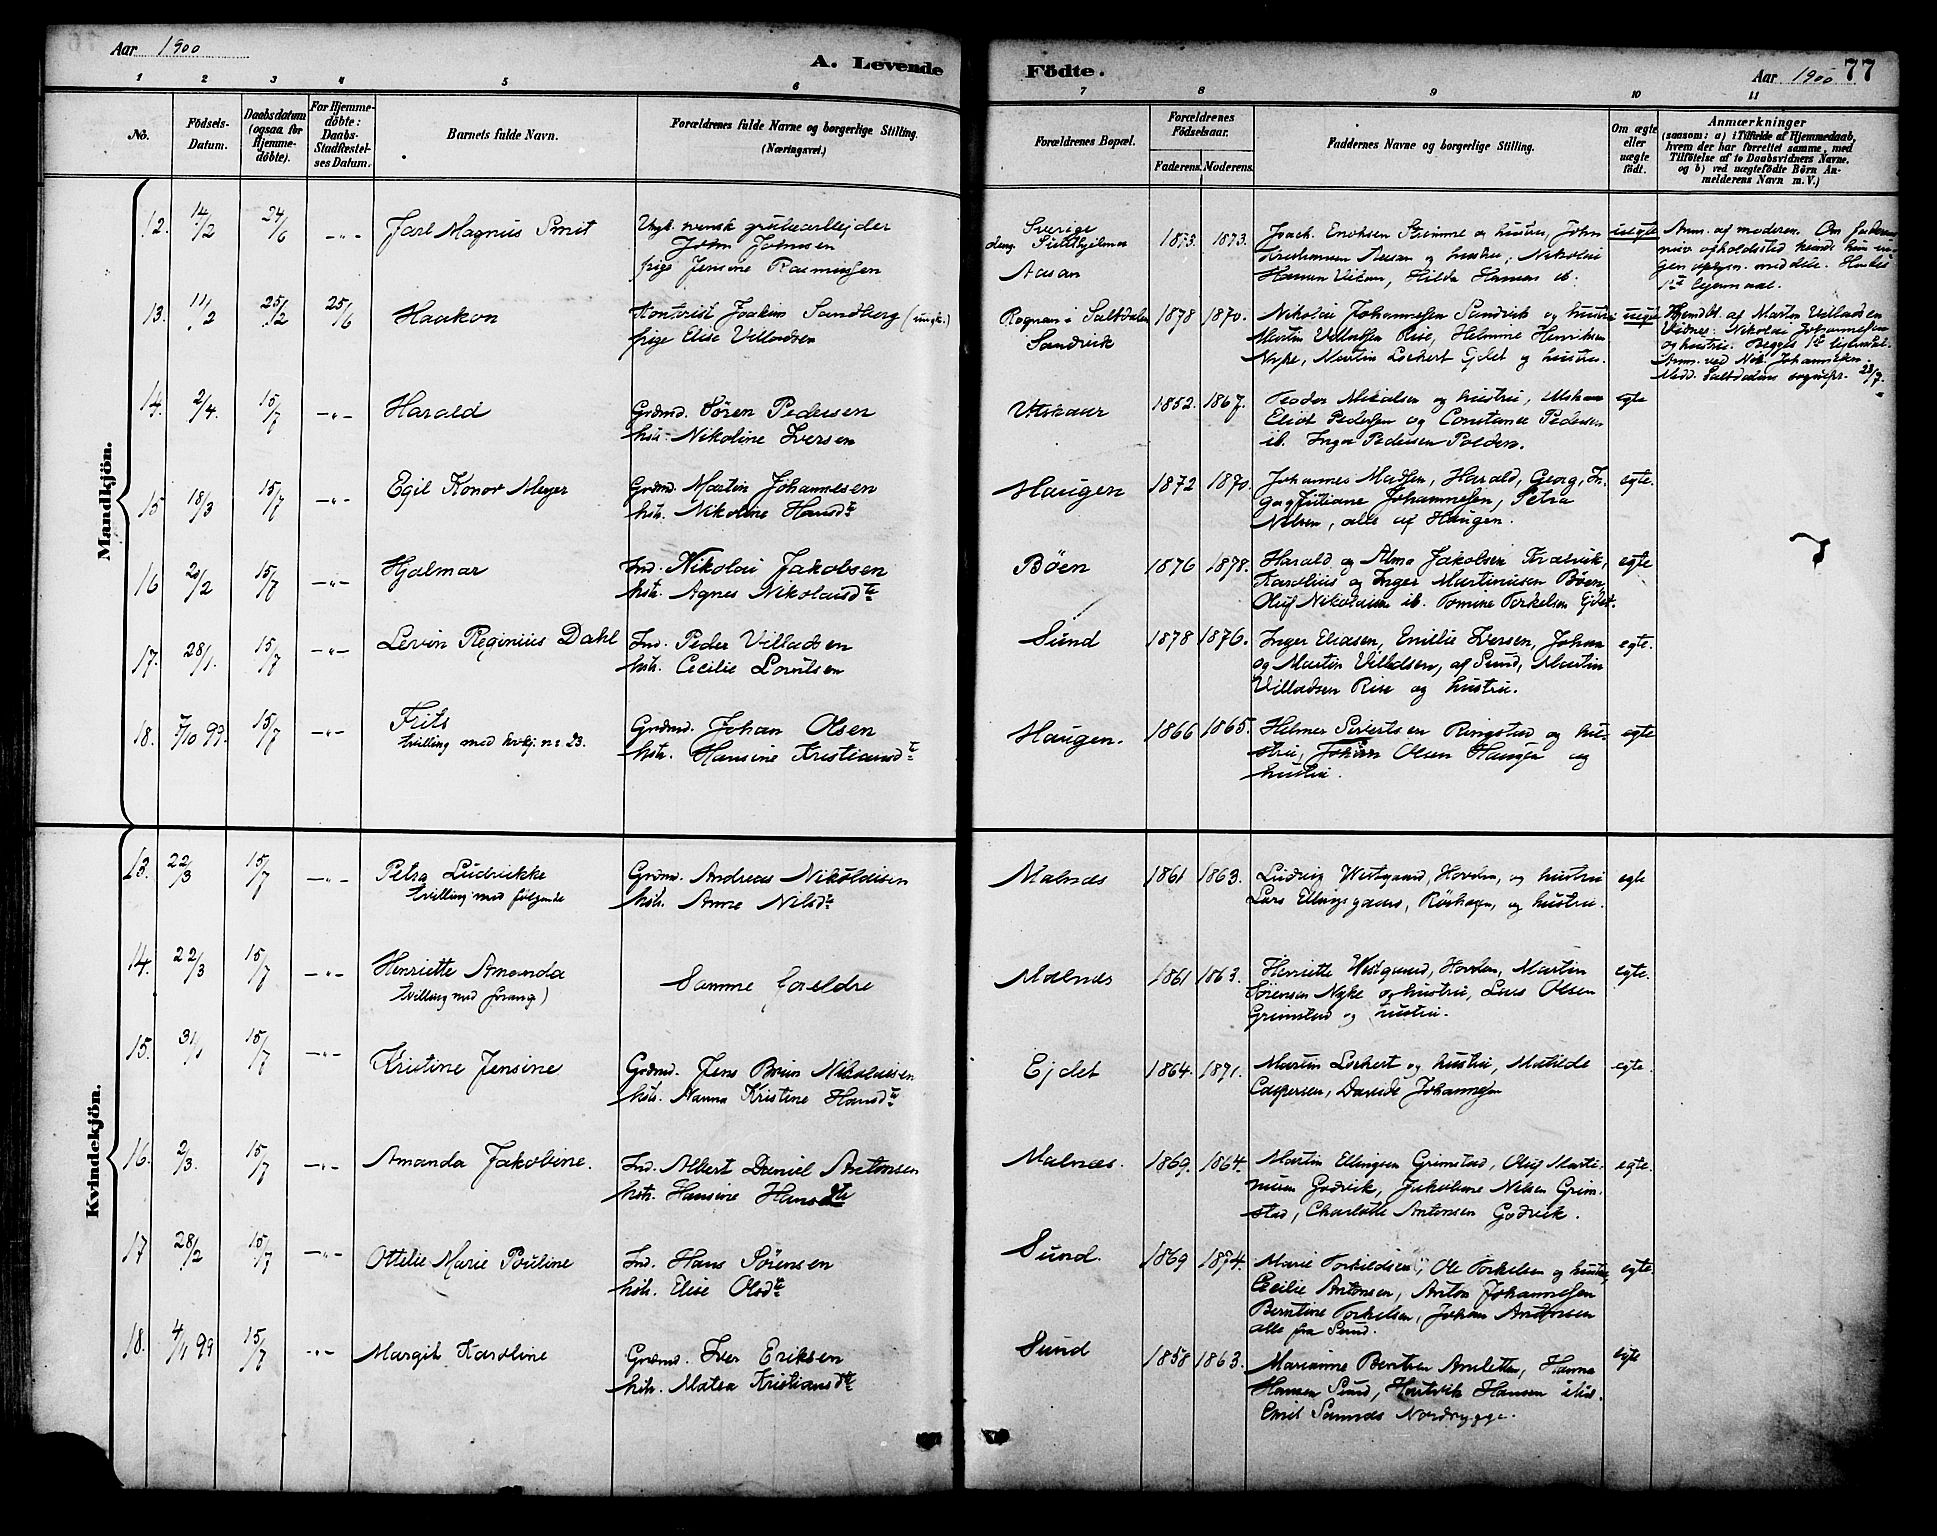 Aar 1900
A. Levende
Födte.
Aar 1900
77
1 2 3 4 5 6 7 8 9 10 11
No.
Födsels-
Datum.
Daabsdatum
(ogsaa for
Hjemme-
döbte).
For Hjemme-
döbte:
Daabs-
Stadfæstel-
ses Datum.
Barnets fulde Navn.
Forældrenes fulde Navne og borgerlige Stilling.
(Næringsvei.)
Forældrenes Bopæl.
Forældrenes
Födselsaar.
Faderens. Moderens.
Faddernes Navne og borgerlige Stilling.
Om ægte
eller
uægte
födt.
Anmærkninger
(saasom: a) i Tilfælde af Hjemmedaab,
hvem der har forrettet samme, med
Tilföielse af to Daabsvidners Navne.
og b) ved uægtefödte Börn An-
melderens Navn m. V.)
Mandkjön.
12. 14/2 24/6 -"- Jarl Magnus Smit
Ungk. svensk grubearbejder
John Johnsen
pige Jensine Rasmussen
Sverige
Aasan
1873. 1873.
uegte
Anm. af moderen. Om faderens
13. 11/2 25/2 25/6 Haakon
Kontorist Joakim Sandberg (ungk.)
pige Elise Villadsen
Rognan i Saltdalen
Sandvik
1878 1870.
Nikolai Johannessen Sandvik og hustru
Martin Villadsen Rise, Helmine Henriksen
Nyke, Martin Lockert Ejdet og hustru.
uegte
Hjemdbt. af Marton Villadsen
Vidner: Nikolai Johannessen
og hustru. Begges 1ste lejermaal.
Anm. ved Nik. Johannessen.
Medd. Saltdalens sognepr. 28/7.
14. 2/4. 15/7 -"- Harald
Grdmd. Sören Pedersen
hstr. Nikoline Iversen
Utskaar
1852. 1867.
Teodor Mikalsen og hustru,
Eliot Pedersen og Constance Pedersen
ib. Inga Pedersen Polden.
egte
15 18/3 15/7 -"- Egil Konor Meyer
Grdmd. Martin Johannesen
hstr. Nikoline Hansdtr
Haugen
1872 1870.
Johannes Madsen, Harald, Georg, In-
ga og Jitiane Johannessen, Petra
Nelsen, alle af Haugen.
egte.
16 21/2 15/7 -"- Hjalmar
Ind. Nikolai Jakobsen
hstr. Agnes Nikolaisdtr
Böen
1876 1878.
Harald og Alma Jakobsen
Karolius og Inger Martinusen Böen,
Oluf Nikolaisen ib. Tomine Torkelsen Ejdet.
egte
17. 28/1. 15/7 -"- Levin Reginius Dahl
Ind. Peder Villadsen
hstr. Cecilie Lorntsen
Sund
1878 1876.
Inger Eliasen, Emilie Iversen, Johan
og Martin Villadsen, af Sund, Martin
Villadsen Rise og hustru.
egte.
18. 7/10 99. 15/7 -"- Frits
tvilling med kvkj. no 23.
Grdmd. Johan Olsen
hstr. Hansine Kristiansdtr
Haugen.
1866 1865.
Helmer Sivertsen Ringstad og hu-
stru, Johan Olsen Haugen og
hustru.
egte
Kvindekjön.
13. 22/3 15/7 -"- Petra Ludvikke
tvilling med fölgende
Grdmd. Andreas Nikolaisen
hstr. Anne Nilsdtr
Malnæs
1861 1863.
Ludvig Westgaard, Hovden, og hustru
Lars Ellingsgaard, Röshagen, og hustru.
egte
14. 22/3 15/7 -"- Henriette Amanda
tvilling med forang)
Samme foreldre
Malnæs
1861 1863.
Henriette Westgaard, Hovden, Martin
Sörensen Nyke og hustru, Lars Olsen
Grimstad og hustru.
egte.
15. 31/1 15/7 -"- Kristine Jensine
Grdmd. Jens Brun Nikolaisen
hstr. Nanna Kristine Hansdtr
Ejdet
1864. 1871.
Martin Lockert og hustru, Matilde
Caspersen, Davide Johannesen
egte.
16. 2/3. 15/7 -"- Amanda Jakobine.
Ind. Albert Daniel Antonsen
hstr. Hansine Hansdtr
Malnæs.
1869. 1864.
Martin Ellingsen Grimstad, Oluf Marti-
nusen Godvik, Jakobine Nilsen Grim-
stad, Charlotte Antonsen Godvik.
egte.
17 28/2 15/7 -"- Ottelie Marie Pauline
Ind. Hans Sörensen
hstr. Elise Olsdtr
Sund.
1869 1874.
Marie Torkildsen, Ole Torkelsen og hustru,
Cecilie Antonsen, Anton Johannesen
Berntine Torkelsen, Johan Antonsen
alle fra Sund.
egte.
18. 4/11 99 15/7 -"- Margit Karoline
Grdmd. Iver Eriksen
hstr. Matea Kristiansdtr
Sund
1858 1863.
Marianne Berntsen Hanna
Hansen Sund, Hartvik Hansen
Emil Nordrygge.
egte